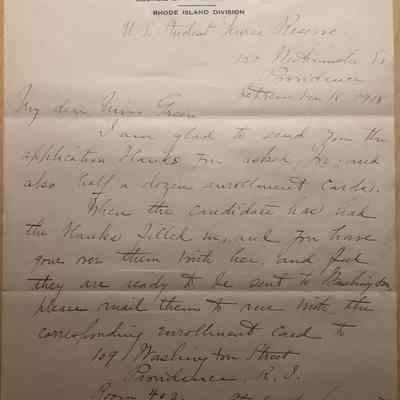 RHODE ISLAND DIVISION
U.S. Student Nurse Reserve
Providence
September 18, 1918
My dear Miss Green
I am glad to send you the
application blanks you asked for, and
also half a dozen enrollment cards.
When the candidate has had
the blanks filled in, and you have
gone over them with her, and feel
they are ready to be sent to Washington
please mail them to me with the
corresponding enrollment card to
109 Washington Street
Providence, R. I.
Room 402